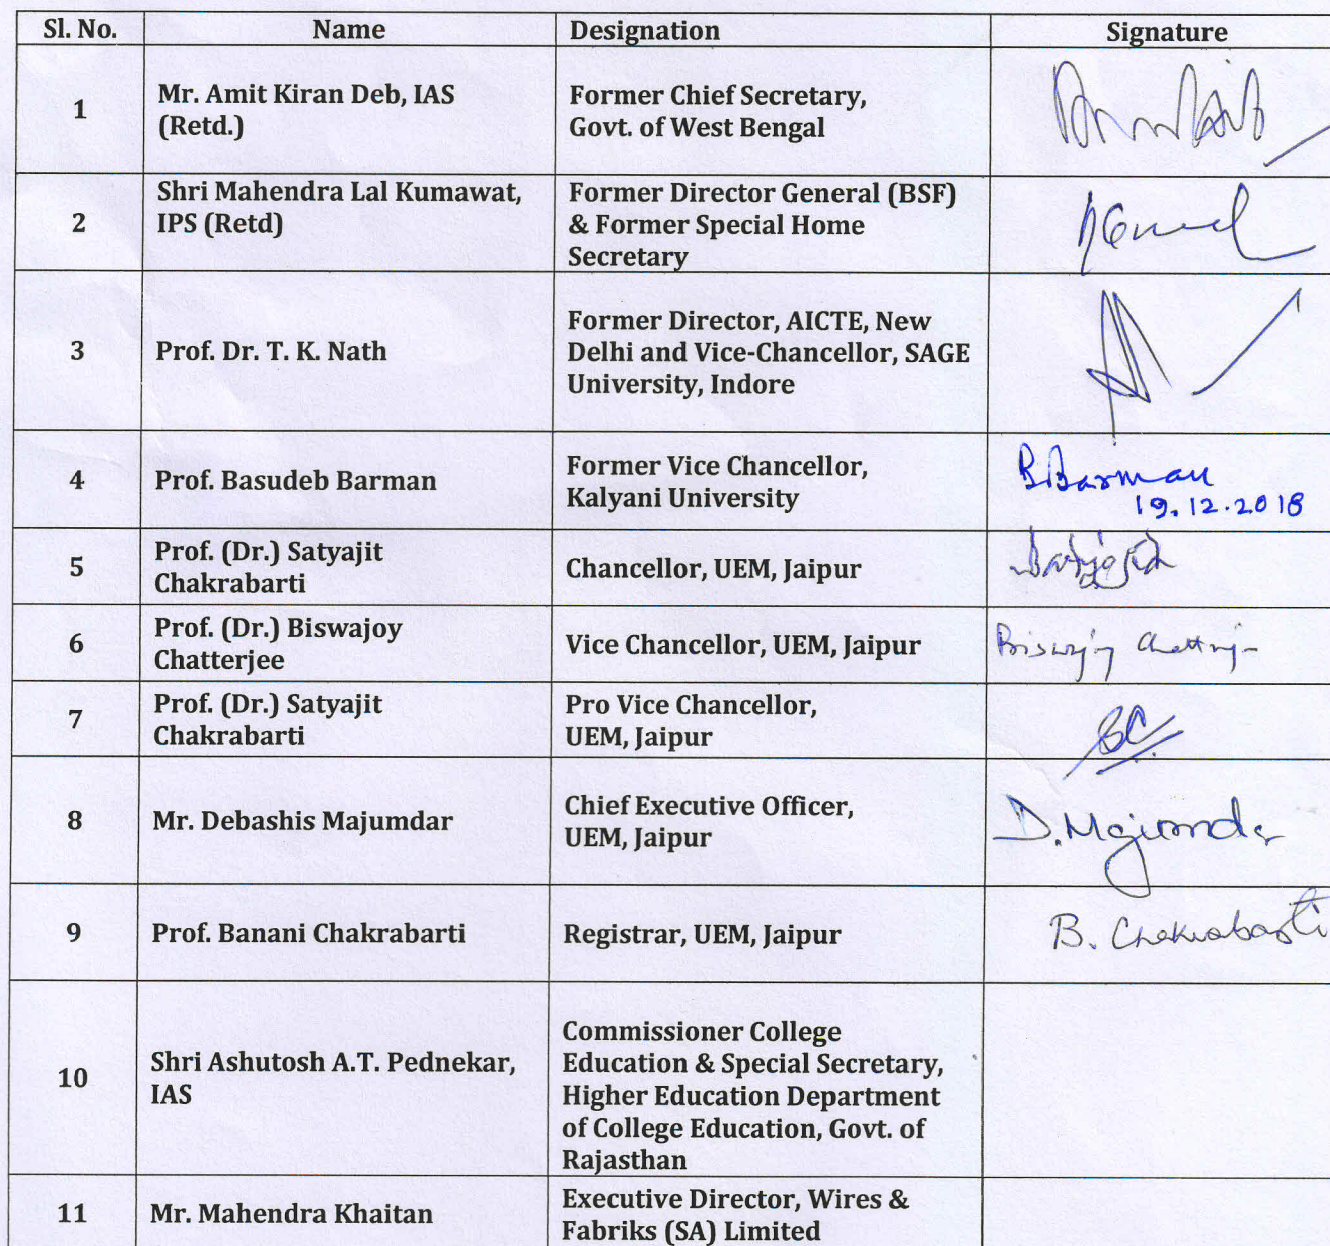 Sl. No. Name Designation Signature
1 Mr. Amit Kiran Deb, IAS
(Retd.)
Former Chief Secretary,
Govt. of West Bengal
2 Shri Mahendra Lal Kumawat,
IPS (Retd)
Former Director General (BSF)
& Former Special Home
Secretary
3 Prof. Dr. T. K. Nath
Former Director, AICTE, New
Delhi and Vice-Chancellor, SAGE
University, Indore
4 Prof. Basudeb Barman
Former Vice Chancellor,
Kalyani University
B.Barman
19.12.2018
5 Prof. (Dr.) Satyajit
Chakrabarti
Chancellor, UEM, Jaipur
Satyajit
6 Prof. (Dr.) Biswajoy
Chatterjee
Vice Chancellor, UEM, Jaipur
7 Prof. (Dr.) Satyajit
Chakrabarti
Pro Vice Chancellor,
UEM, Jaipur
SC
8 Mr. Debashis Majumdar
Chief Executive Officer,
UEM, Jaipur
D.Majumdar
9 Prof. Banani Chakrabarti
Registrar, UEM, Jaipur
B. Chakrabarti
10 Shri Ashutosh A.T. Pednekar,
IAS
Commissioner College
Education & Special Secretary,
Higher Education Department
of College Education, Govt. of
Rajasthan
11 Mr. Mahendra Khaitan
Executive Director, Wires &
Fabriks (SA) Limited